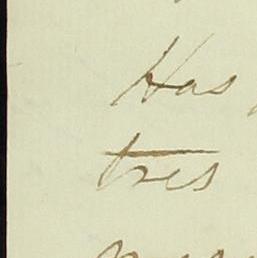 Has
tres